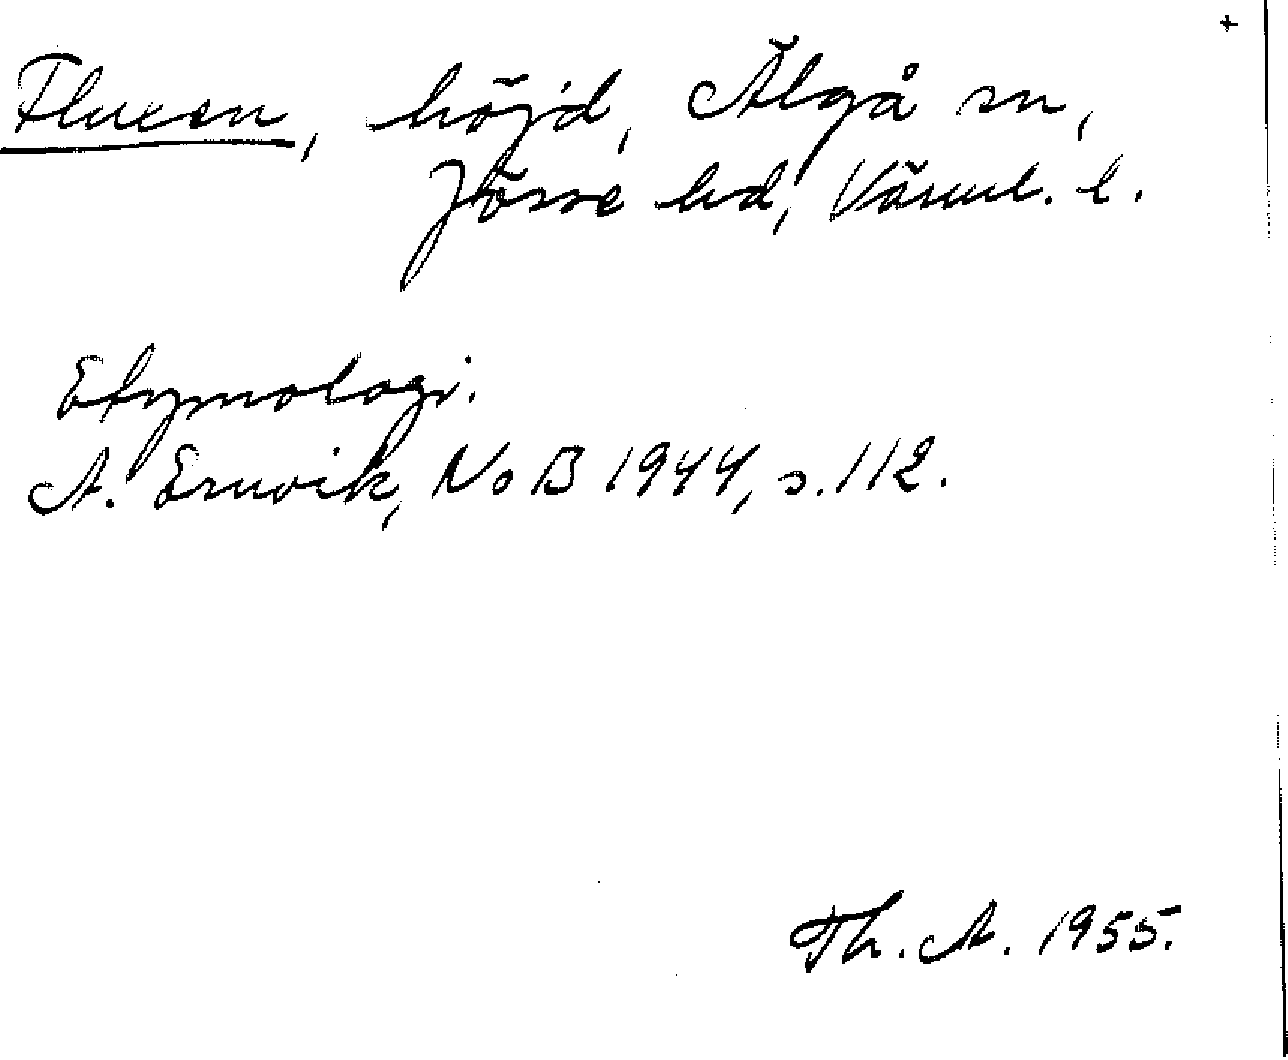 +
Fluesn, höjd, Älgå sn,
Jösse hd, Värml. l.
Etymologi.
A. Ernvik, NoB 1944, s. 112.
Th. A. 1955.